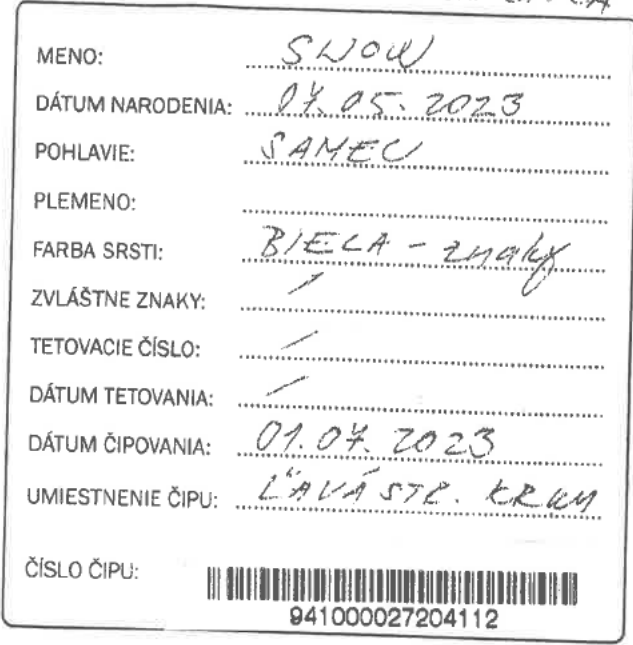 MENO: SNOW
DÁTUM NARODENIA: 07.05.2023
POHLAVIE: SAMEC
PLEMENO:
FARBA SRSTI: BIELA - znaky
ZVLÁŠTNE ZNAKY: /
TETOVACIE ČÍSLO: /
DÁTUM TETOVANIA: /
DÁTUM ČIPOVANIA: 01.07.2023
UMIESTNENIE ČIPU: ĽAVÁ STR. KRKU
ČÍSLO ČIPU:
941000027204112